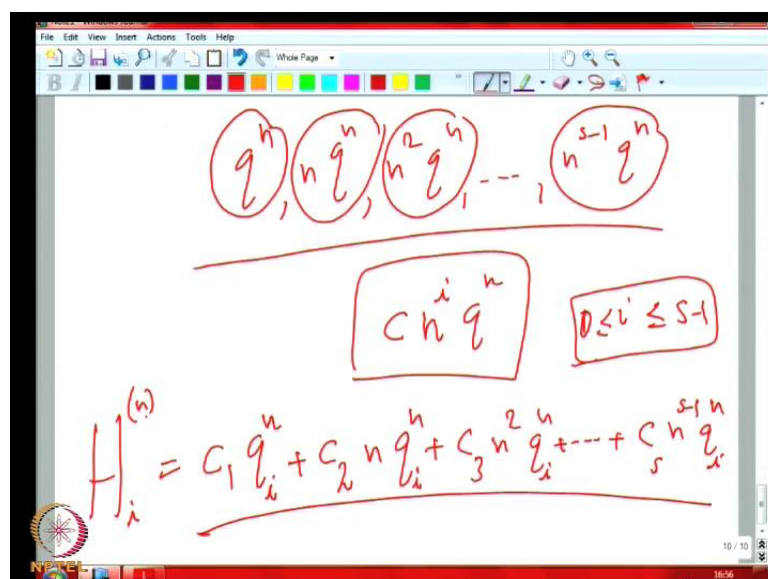 Note1 - Windows Journal
File Edit View Insert Actions Tools Help
Whole Page
B I
qⁿ, n qⁿ, n² qⁿ, ---, n^{s-1} qⁿ
c nⁱ qⁿ 0 ≤ i ≤ s-1
H_i^{(n)} = c₁ q_iⁿ + c₂ n q_iⁿ + c₃ n² q_iⁿ + --- + c_s n^{s-1} q_iⁿ
NPTEL
10 / 10
16:56